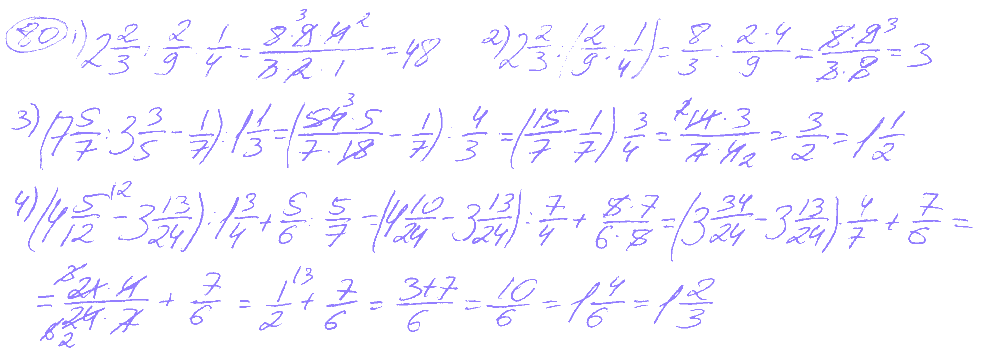 80 1) 2 2/3 : 2/9 : 1/4 = (8·9·4)/(3·2·1) = 48 2) 2 2/3 : (2/9 : 1/4) = 8/3 : (2·4)/9 = (8·9)/(3·8) = 3
3) (7 5/7 : 3 3/5 − 1/7) : 1 1/3 = ((54·5)/(7·18) − 1/7) : 4/3 = (15/7 − 1/7) · 3/4 = (14·3)/(7·4) = 3/2 = 1 1/2
4) (4 5/12 − 3 13/24) : 1 3/4 + 5/6 : 5/7 = (4 10/24 − 3 13/24) : 7/4 + (5·7)/(6·5) = (3 34/24 − 3 13/24) · 4/7 + 7/6 =
= (21·4)/(24·7) + 7/6 = 1/2 + 7/6 = (3+7)/6 = 10/6 = 1 4/6 = 1 2/3